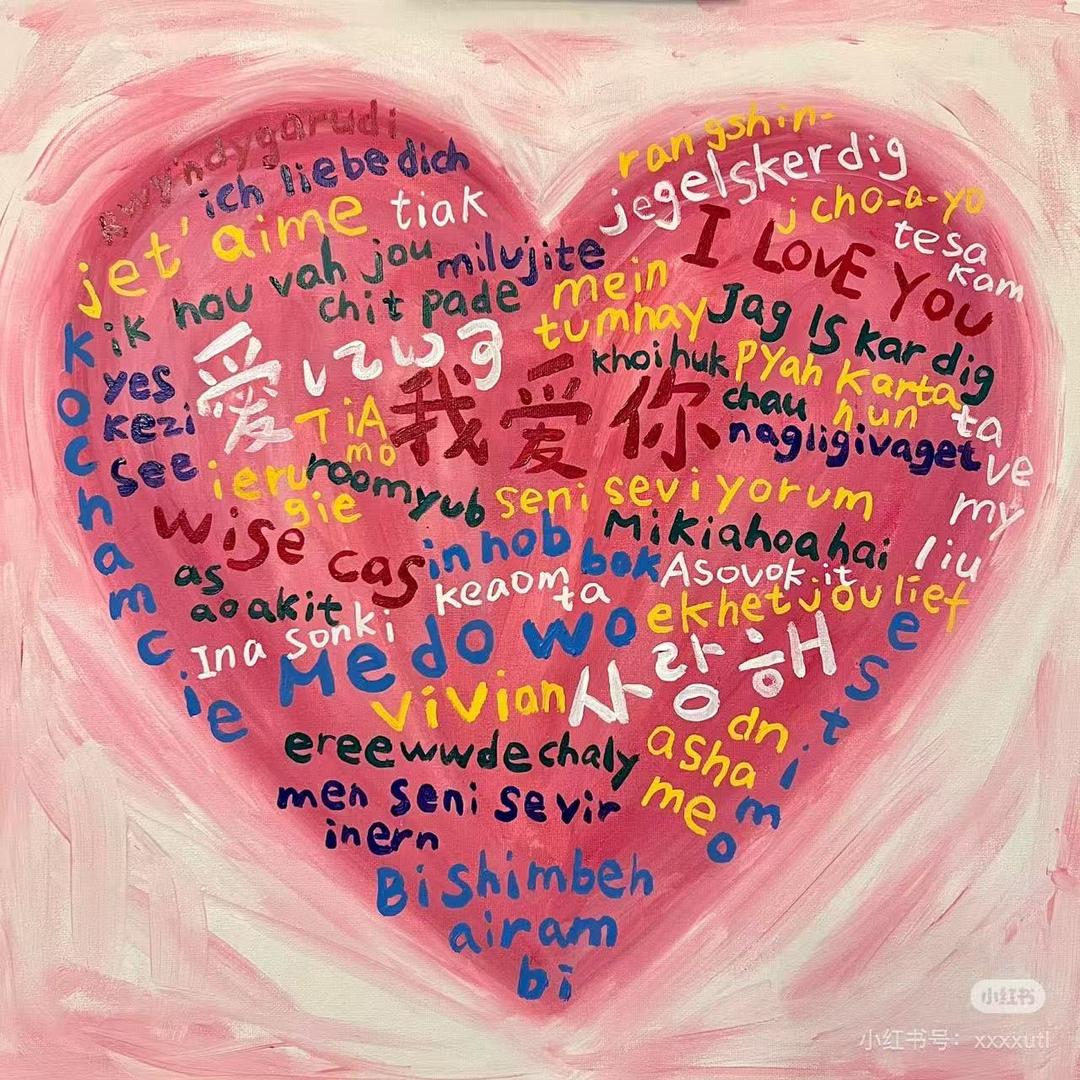 rwy'ndygarudi
ich liebe dich
jet' aime
tiak
rangshin-
jegelskerdig
j cho-a-yo
I LOVE YOU
tesa
kam
hou vah jou
milujite
chit pade
mein
tumhay
Jag ls kar dig
ik
kochamcie
yes
kezi
see
愛していつ
TiA
mo
我爱你
khoihuk
pyah karta
hun
chau
nagligivaget
ta
ve
my
liu
ieru
gie
roomyub
seni seviyorum
wise cas
inhob
bok
Mikiahoahai
as
aoakit
keaom
ta
Asovok it
ekhetjoulief
Ina sonki
Me do wo
estimo
vivian
사랑해
ereewwdechaly
dn
asha
me
men seni sevir
inern
Bishimbeh
airam
bi
小红书
小红书号：xxxxutl